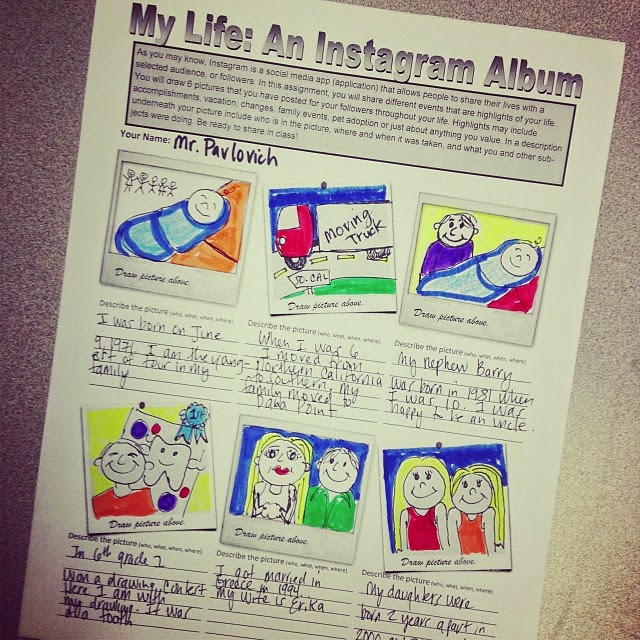 My Life: An Instagram Album
As you may know, Instagram is a social media app (application) that allows people to share their lives with a
selected audience, or followers. In this assignment, you will share different events that are highlights of your life.
You will draw 6 pictures that you have posted for your followers throughout your life. Highlights may include
accomplishments, vacation, changes, family events, pet adoption or just about anything you value. In a description
underneath your picture include who is in the picture, where and when it was taken, and what you and other sub-
jects were doing. Be ready to share in class!
Your Name: Mr. Pavlovich
Draw picture above.
Describe the picture (who, what, when, where).
I was born on June
9, 1971. I am the young-
est of four in my
family
Moving
Truck
SO. CAL
Draw picture above.
Describe the picture (who, what, when, where).
When I was 6
I moved from
Northern California
to Southern. My
family moved to
Dana Point
Draw picture above.
Describe the picture (who, what, when, where).
My nephew Barry
was born in 1981 when
I was 10. I was
happy to be an uncle.
1st
Draw picture above.
Describe the picture (who, what, when, where).
In 6th grade I
won a drawing contest
Here I am with
my drawing. It was
of a tooth
Draw picture above.
Describe the picture (who, what, when, where).
I got married in
Greece in 1994
my wife is Erika
Draw picture above.
Describe the picture (who, what, when, where).
My daughters were
born 2 years apart in
2000